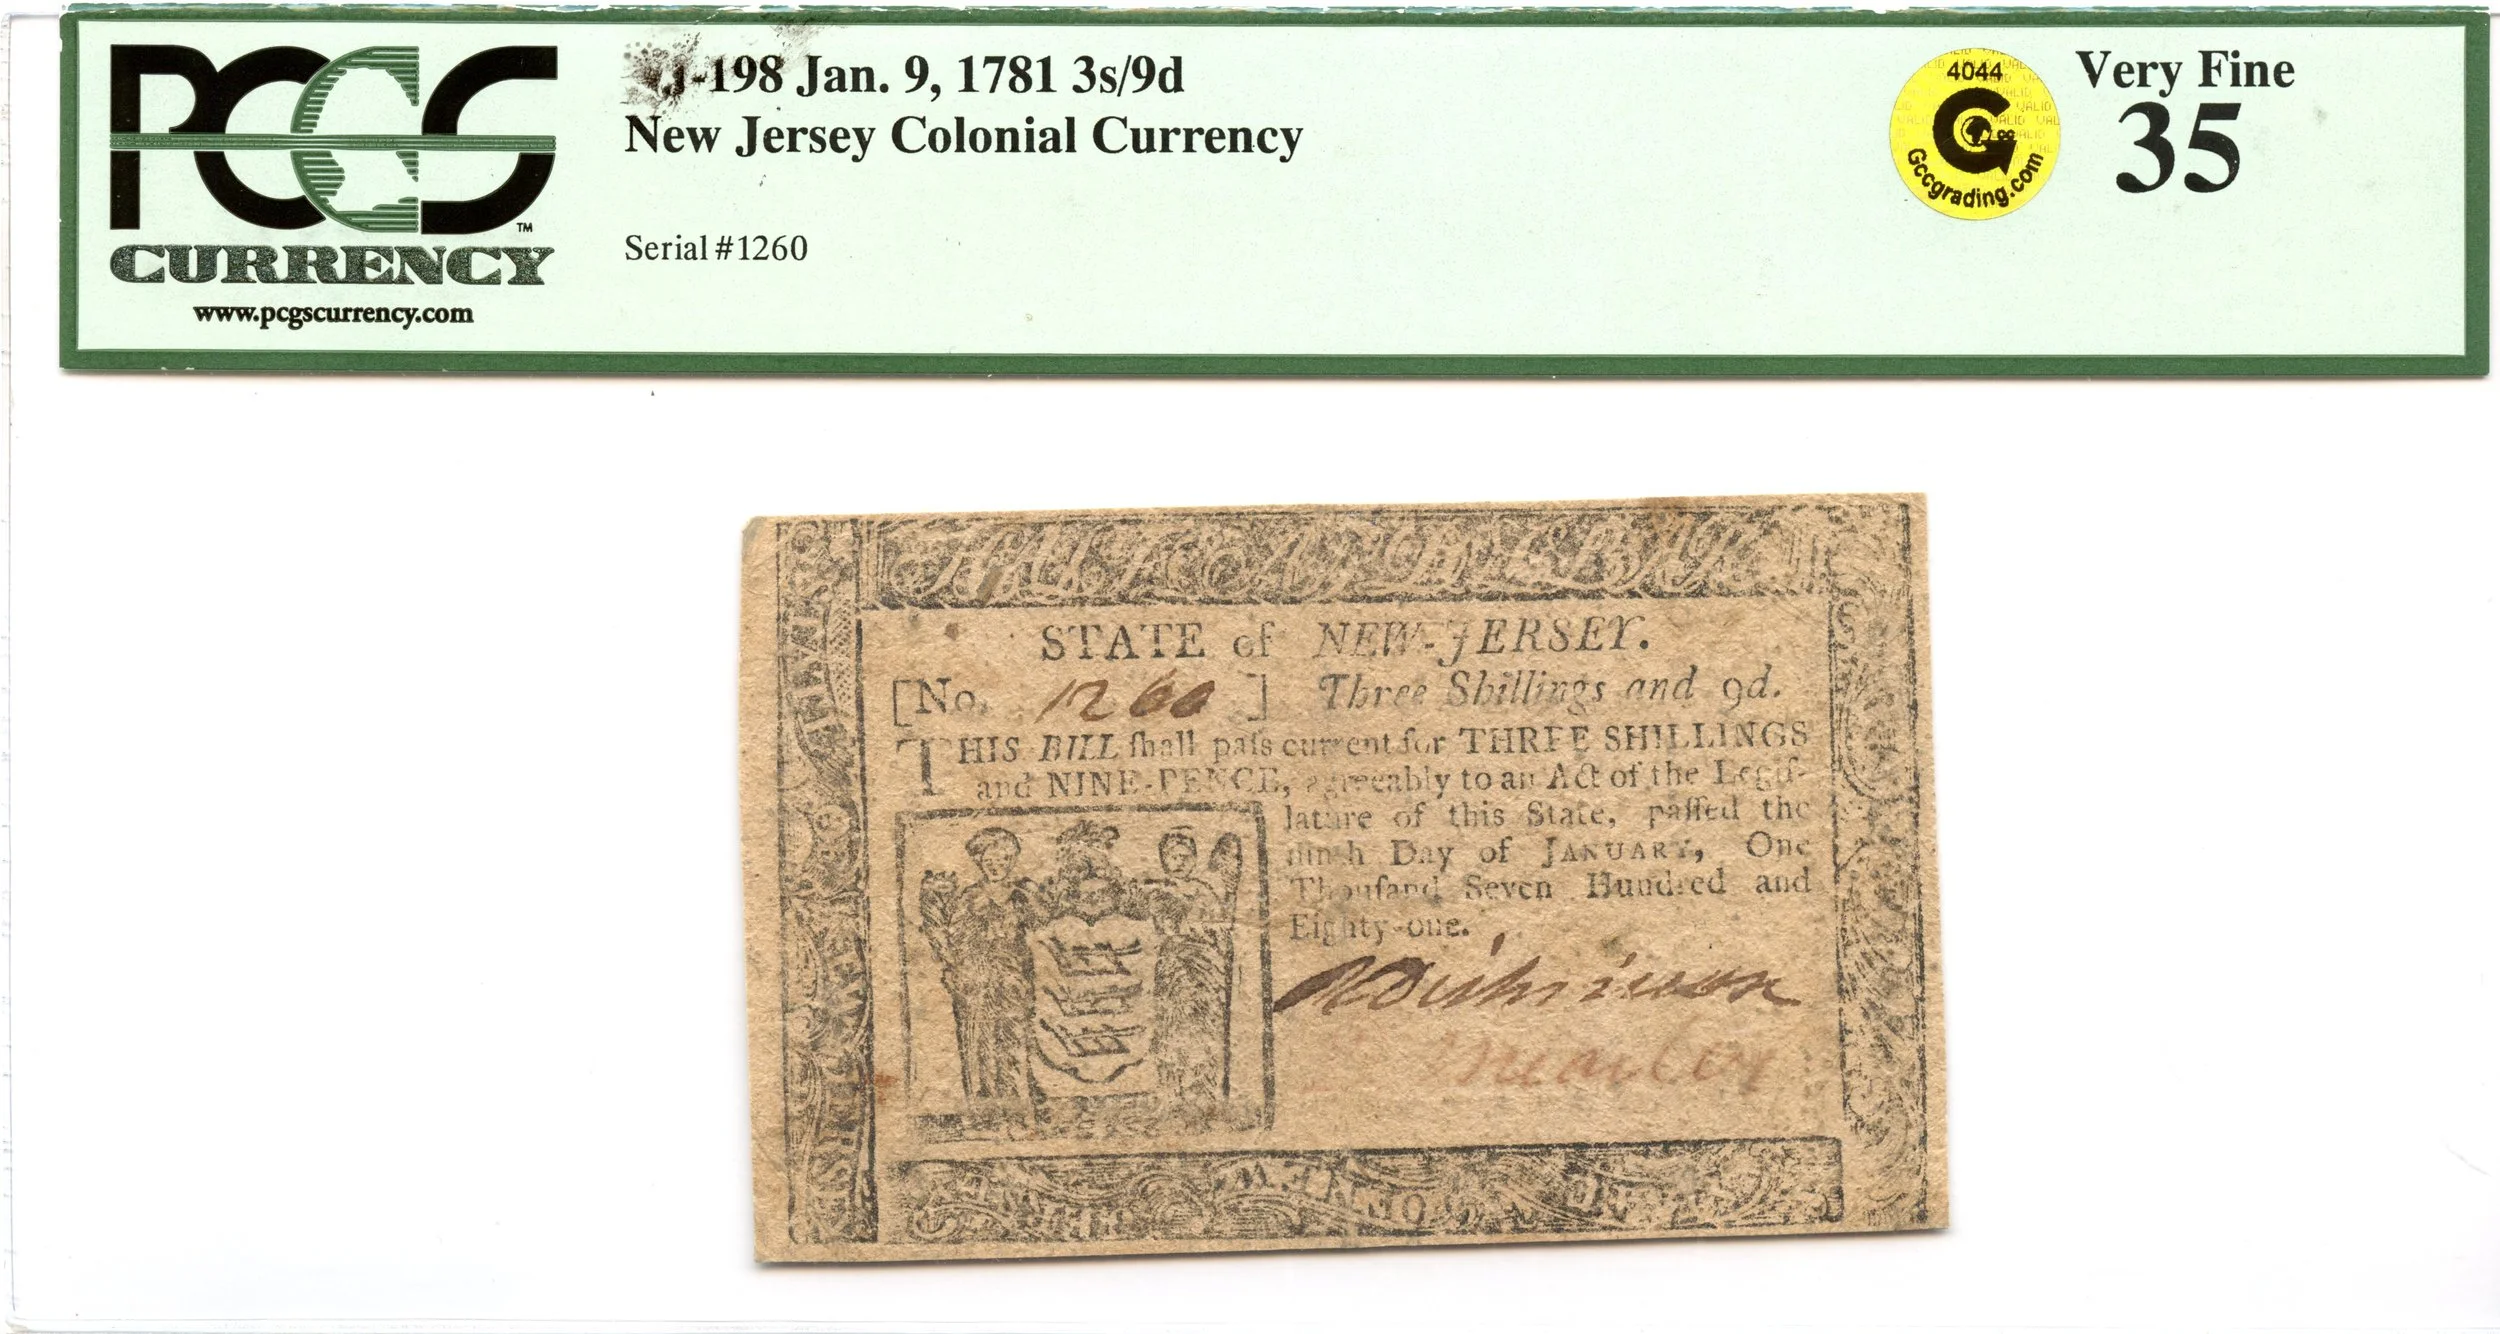 PCGS
CURRENCY
™
www.pcgscurrency.com
-198 Jan. 9, 1781 3s/9d
New Jersey Colonial Currency
Serial #1260
4044
Gccgrading.com
Very Fine
35
STATE of NEW-JERSEY.
[No. 1260 ] Three Shillings and 9d.
THIS BILL ſhall paſs current for THREE SHILLINGS
and NINE-PENCE, agreeably to an Act of the Legiſ-
lature of this State, paſſed the
ninth Day of JANUARY, One
Thouſand Seven Hundred and
Eighty-one.